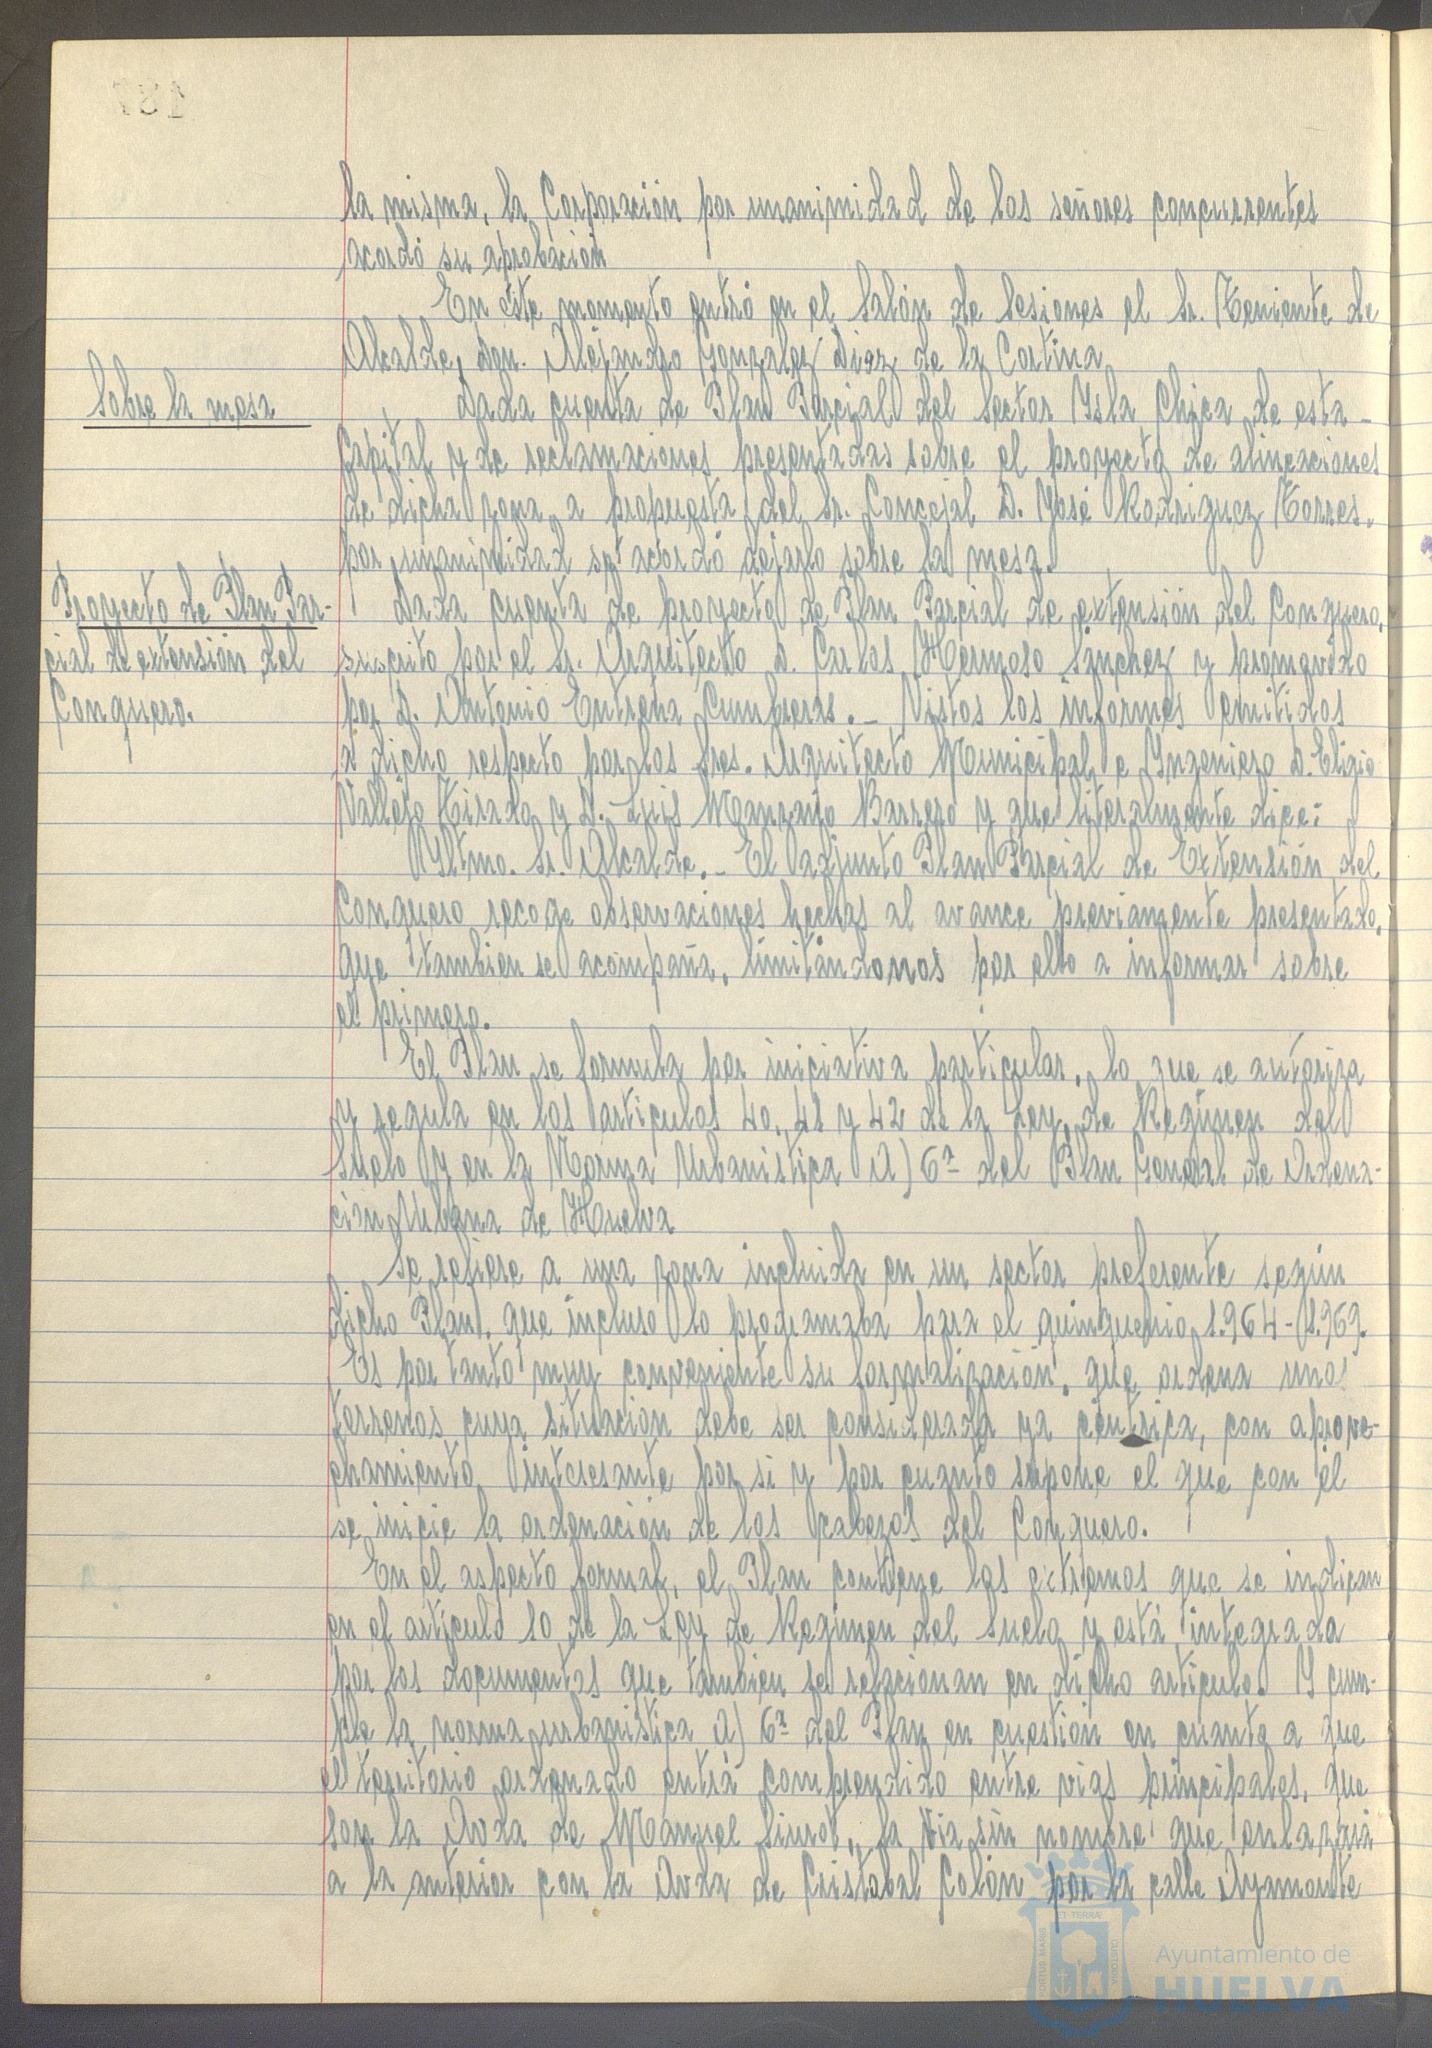 187
la misma, la Corporación por unanimidad de los señores concurrentes
acordó su aprobación
En este momento entró en el Salón de Sesiones el Sr. Teniente de
Alcalde, Don. Alejandro Gonzalez Diaz de la Cortina
Sobre la mesa
Dada cuenta de Plan Parcial del Sector Ysla Chica de esta
Capital y de reclamaciones presentadas sobre el proyecto de alineaciones
de dicha zona, a propuesta del Sr. Concejal D. José Rodriguez Torres.
por unanimidad se acordó dejarlo sobre la mesa.
Proyecto de Plan Par-
cial de extensión del
Conquero.
Dada cuenta de proyecto de Plan Parcial de extensión del Conquero,
suscrito por el Sr. Arquitecto D. Carlos Hermoso Sánchez y promovido
por D. Antonio Entrena Cumbreras.- Vistos los informes emitidos
a dicho respecto por los Sres. Arquitecto Municipal e Yngeniero D. Eligio
Vallejo Tirado y D. Luis Manzano Barrero y que literalmente dice:
Yltmo. Sr. Alcalde.- El adjunto Plan Parcial de Extensión del
Conquero recoge observaciones hechas al avance previamente presentado,
que tambien se acompaña, limitándonos por ello a informar sobre
el primero.
El Plan se formula por iniciativa particular, lo que se autoriza
y regula en los artículos 40, 41 y 42 de la Ley de Regimen del
Suelo y en la Norma Urbanistica A) 6ª del Plan General de Ordena-
cion Urbana de Huelva
Se refiere a una zona incluida en un sector preferente según
dicho Plan, que incluso lo programaba para el quinquenio 1.964-1.969.
Es por tanto muy conveniente su formalización, que ordena unos
terrenos cuya situación debe ser considerada ya céntrica, con aprove-
chamiento interesante por si y por cuanto supone el que con él
se inicie la ordenación de los cabezos del Conquero.
En el aspecto formal, el Plan contiene los extremos que se indican
en el artículo 10 de la Ley de Regimen del Suelo y está integrada
por los documentos que tambien se relacionan en dicho artículo. Y cum-
ple la norma urbanistica A) 6ª del Plan en cuestión en cuanto a que
el territorio ordenado entra comprendido entre vias principales, que
son la Avda de Manuel Siurot, la via sin nombre que enlazará
a la anterior con la Avda de Cristobal Colón por la calle Ayamonte
PORTUS MARIS
ET TERRÆ
CUSTODIA
Ayuntamiento de
HUELVA